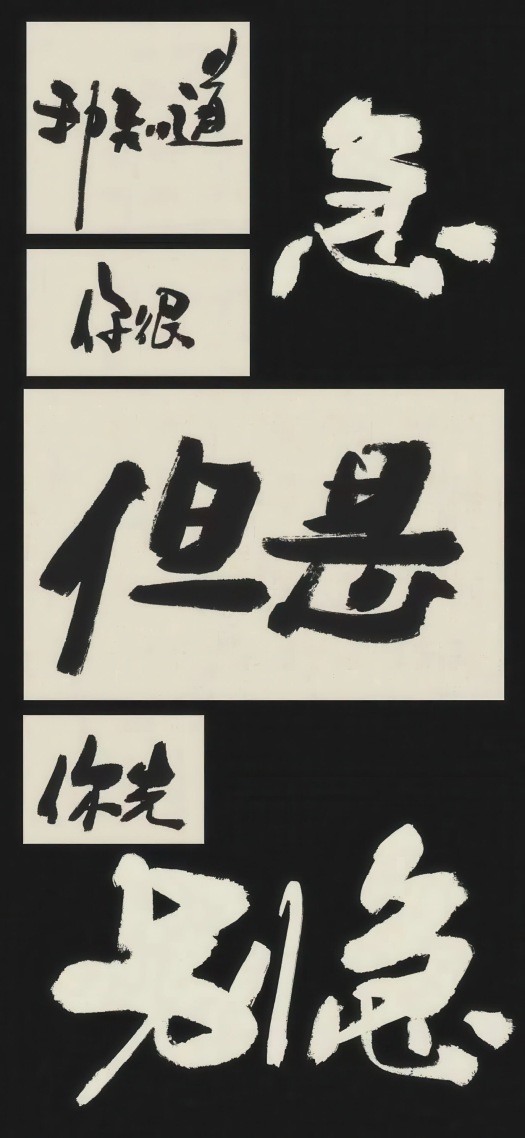 我知道
你很
急
但是
你先
别急